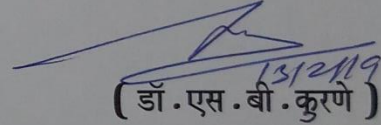 13/2/19
( डॉ . एस . बी . कुरणे )